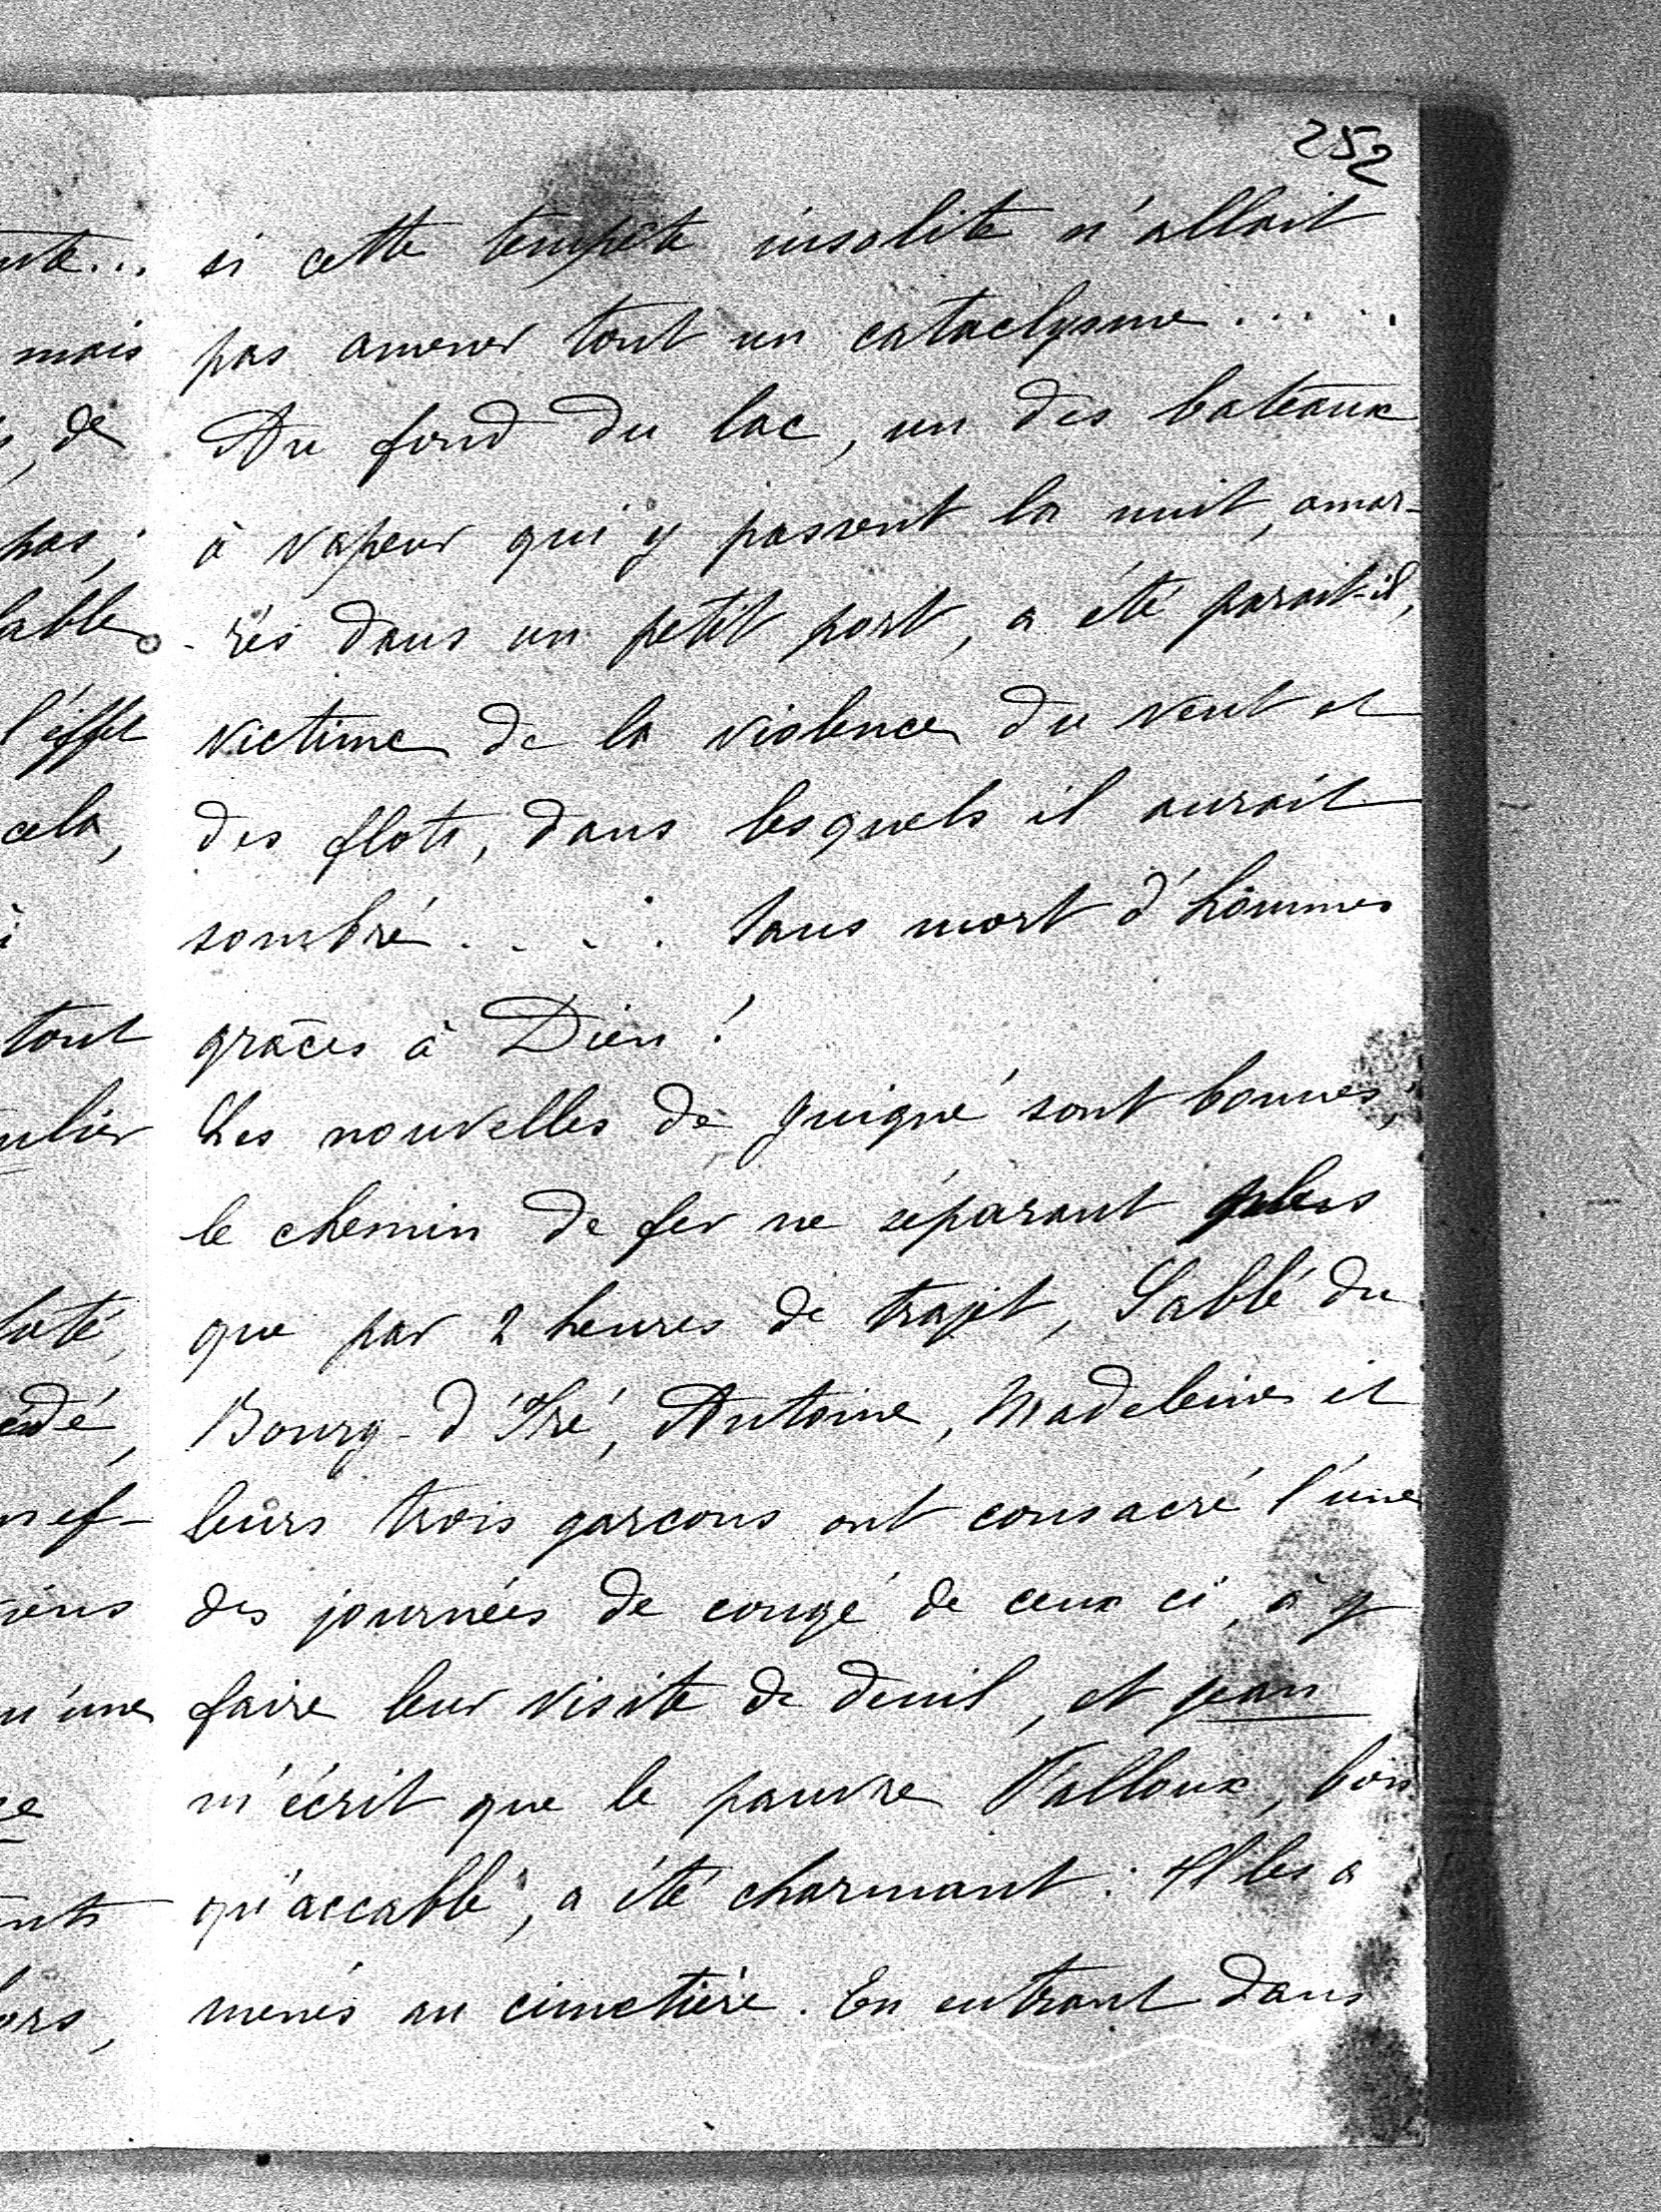 252
si cette tempête insolite n'allait
pas amener tout un cataclysme.....
Au fond du lac, un des bateaux
à vapeur qui y passent la nuit, amar-
-rés dans un petit port, a été parait-il,
victime de la violence du vent et
des flots, dans lesquels il aurait
sombré.... sans mort d'hommes
grâces à Dieu!
Les nouvelles de Juigné sont bonnes,
le chemin de fer ne séparant plus
que par 2 heures de trajet, Sablé du
Bourg-d'Iré, Antoine, Madeleine et
leurs trois garcons ont consacré l'une
des journées de congé de ceux ci, à y
faire leur visite de deuil, et Jean
m'écrit que le pauvre Falloux, bon
qu'accablé, a été charmant: Il les a
menés au cimetière. En entrant dans
mais
de
pas;
l'effet
cela,
tout